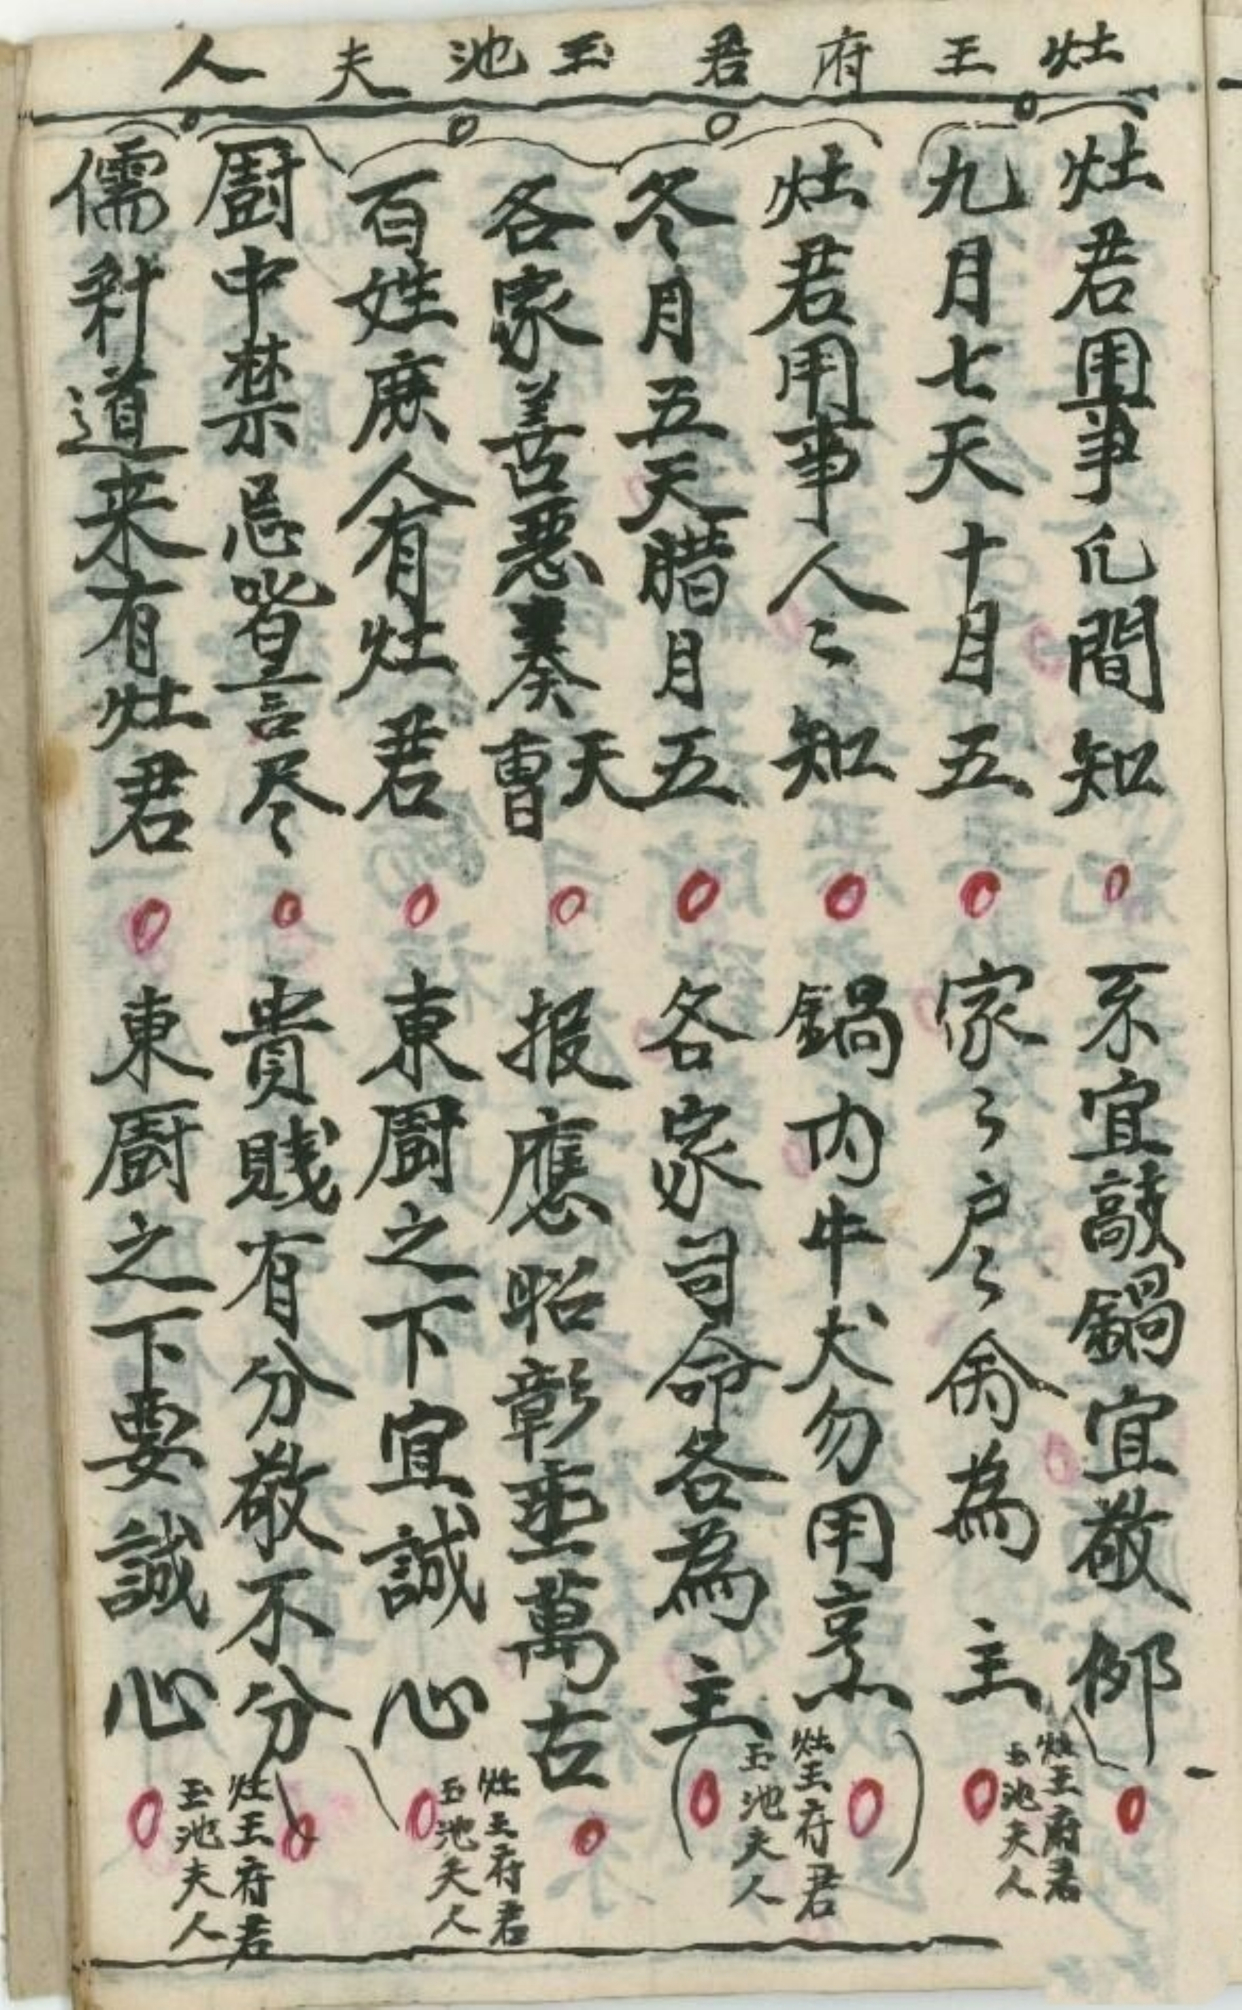 灶王府君玉池夫人
灶君用事凢間知 不宜敲鍋宜敬
九月七天十月五 家〻戶〻為主
灶王府君
玉池夫人
灶君用事人〻知 鍋內牛犬勿用烹
冬月五天腊月五 各家司命各為主
灶王府君
玉池夫人
各家善惡奏天曹 报應昭彰垂萬古
百姓庶人有灶君 東廚之下宜誠心
灶王府君
玉池夫人
廚中禁忌言尽 貴賤有分敬不分
儒釋道来有灶君 東廚之下要誠心
灶王府君
玉池夫人